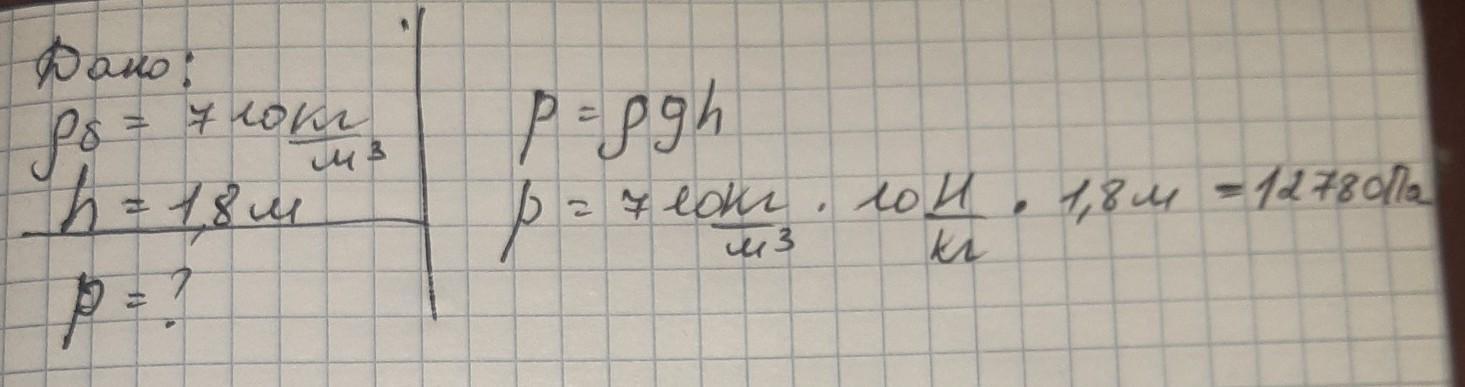 Дано:
ρб = 710 кг/м³
h = 1,8 м
p = ?
p = ρgh
p = 710 кг/м³ · 10 Н/кг · 1,8 м = 12780 Па